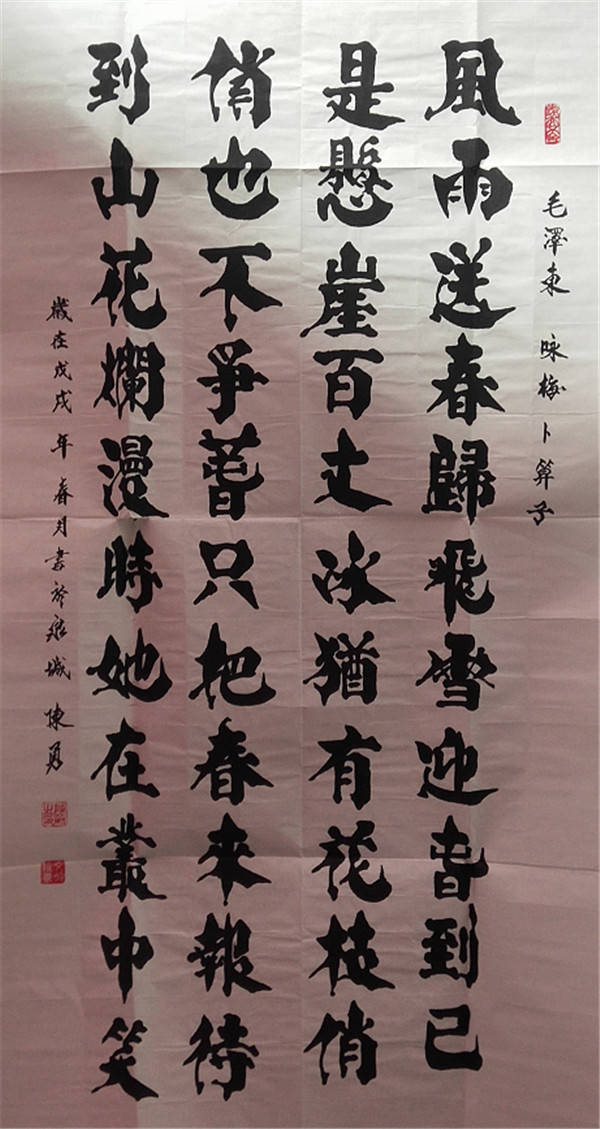 毛澤東 咏梅 卜算子
風雨送春歸飛雪迎旾到已
是懸崖百丈冰猶有花枝俏
俏也不爭萅只把春來報待
到山花爛漫時她在叢中笑
歲在戊戌年春月書於泉城 陳勇